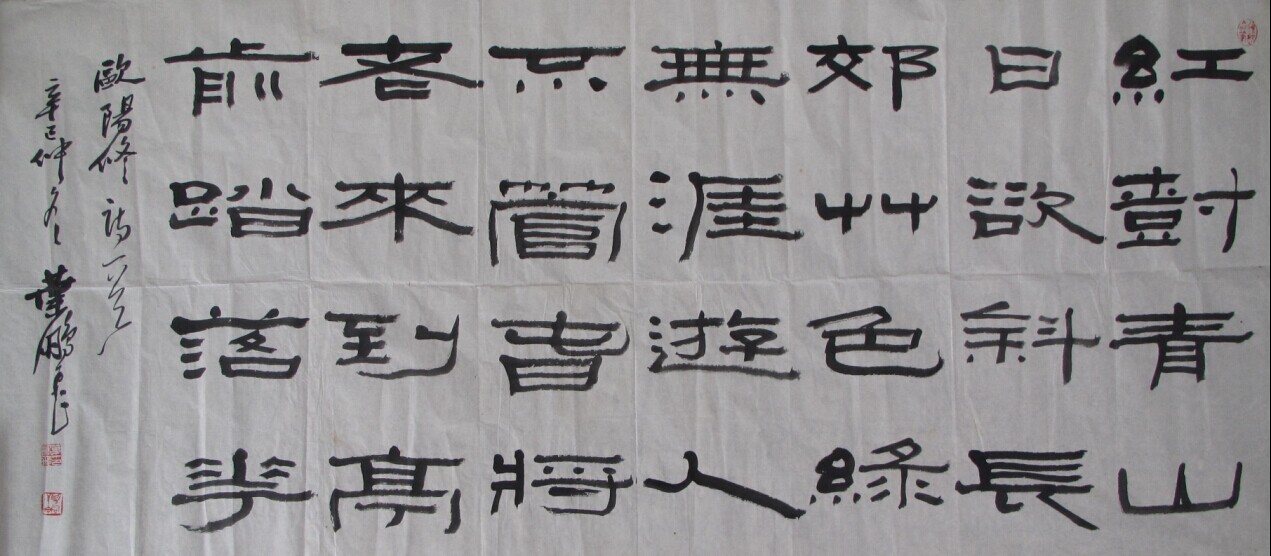 紅尌青山
日欲斜長
郊艸色綠
無涯遊人
不管春將
老來到亭
前踏落花
歐陽修詩一首
辛巳仲冬 葉鵬飛